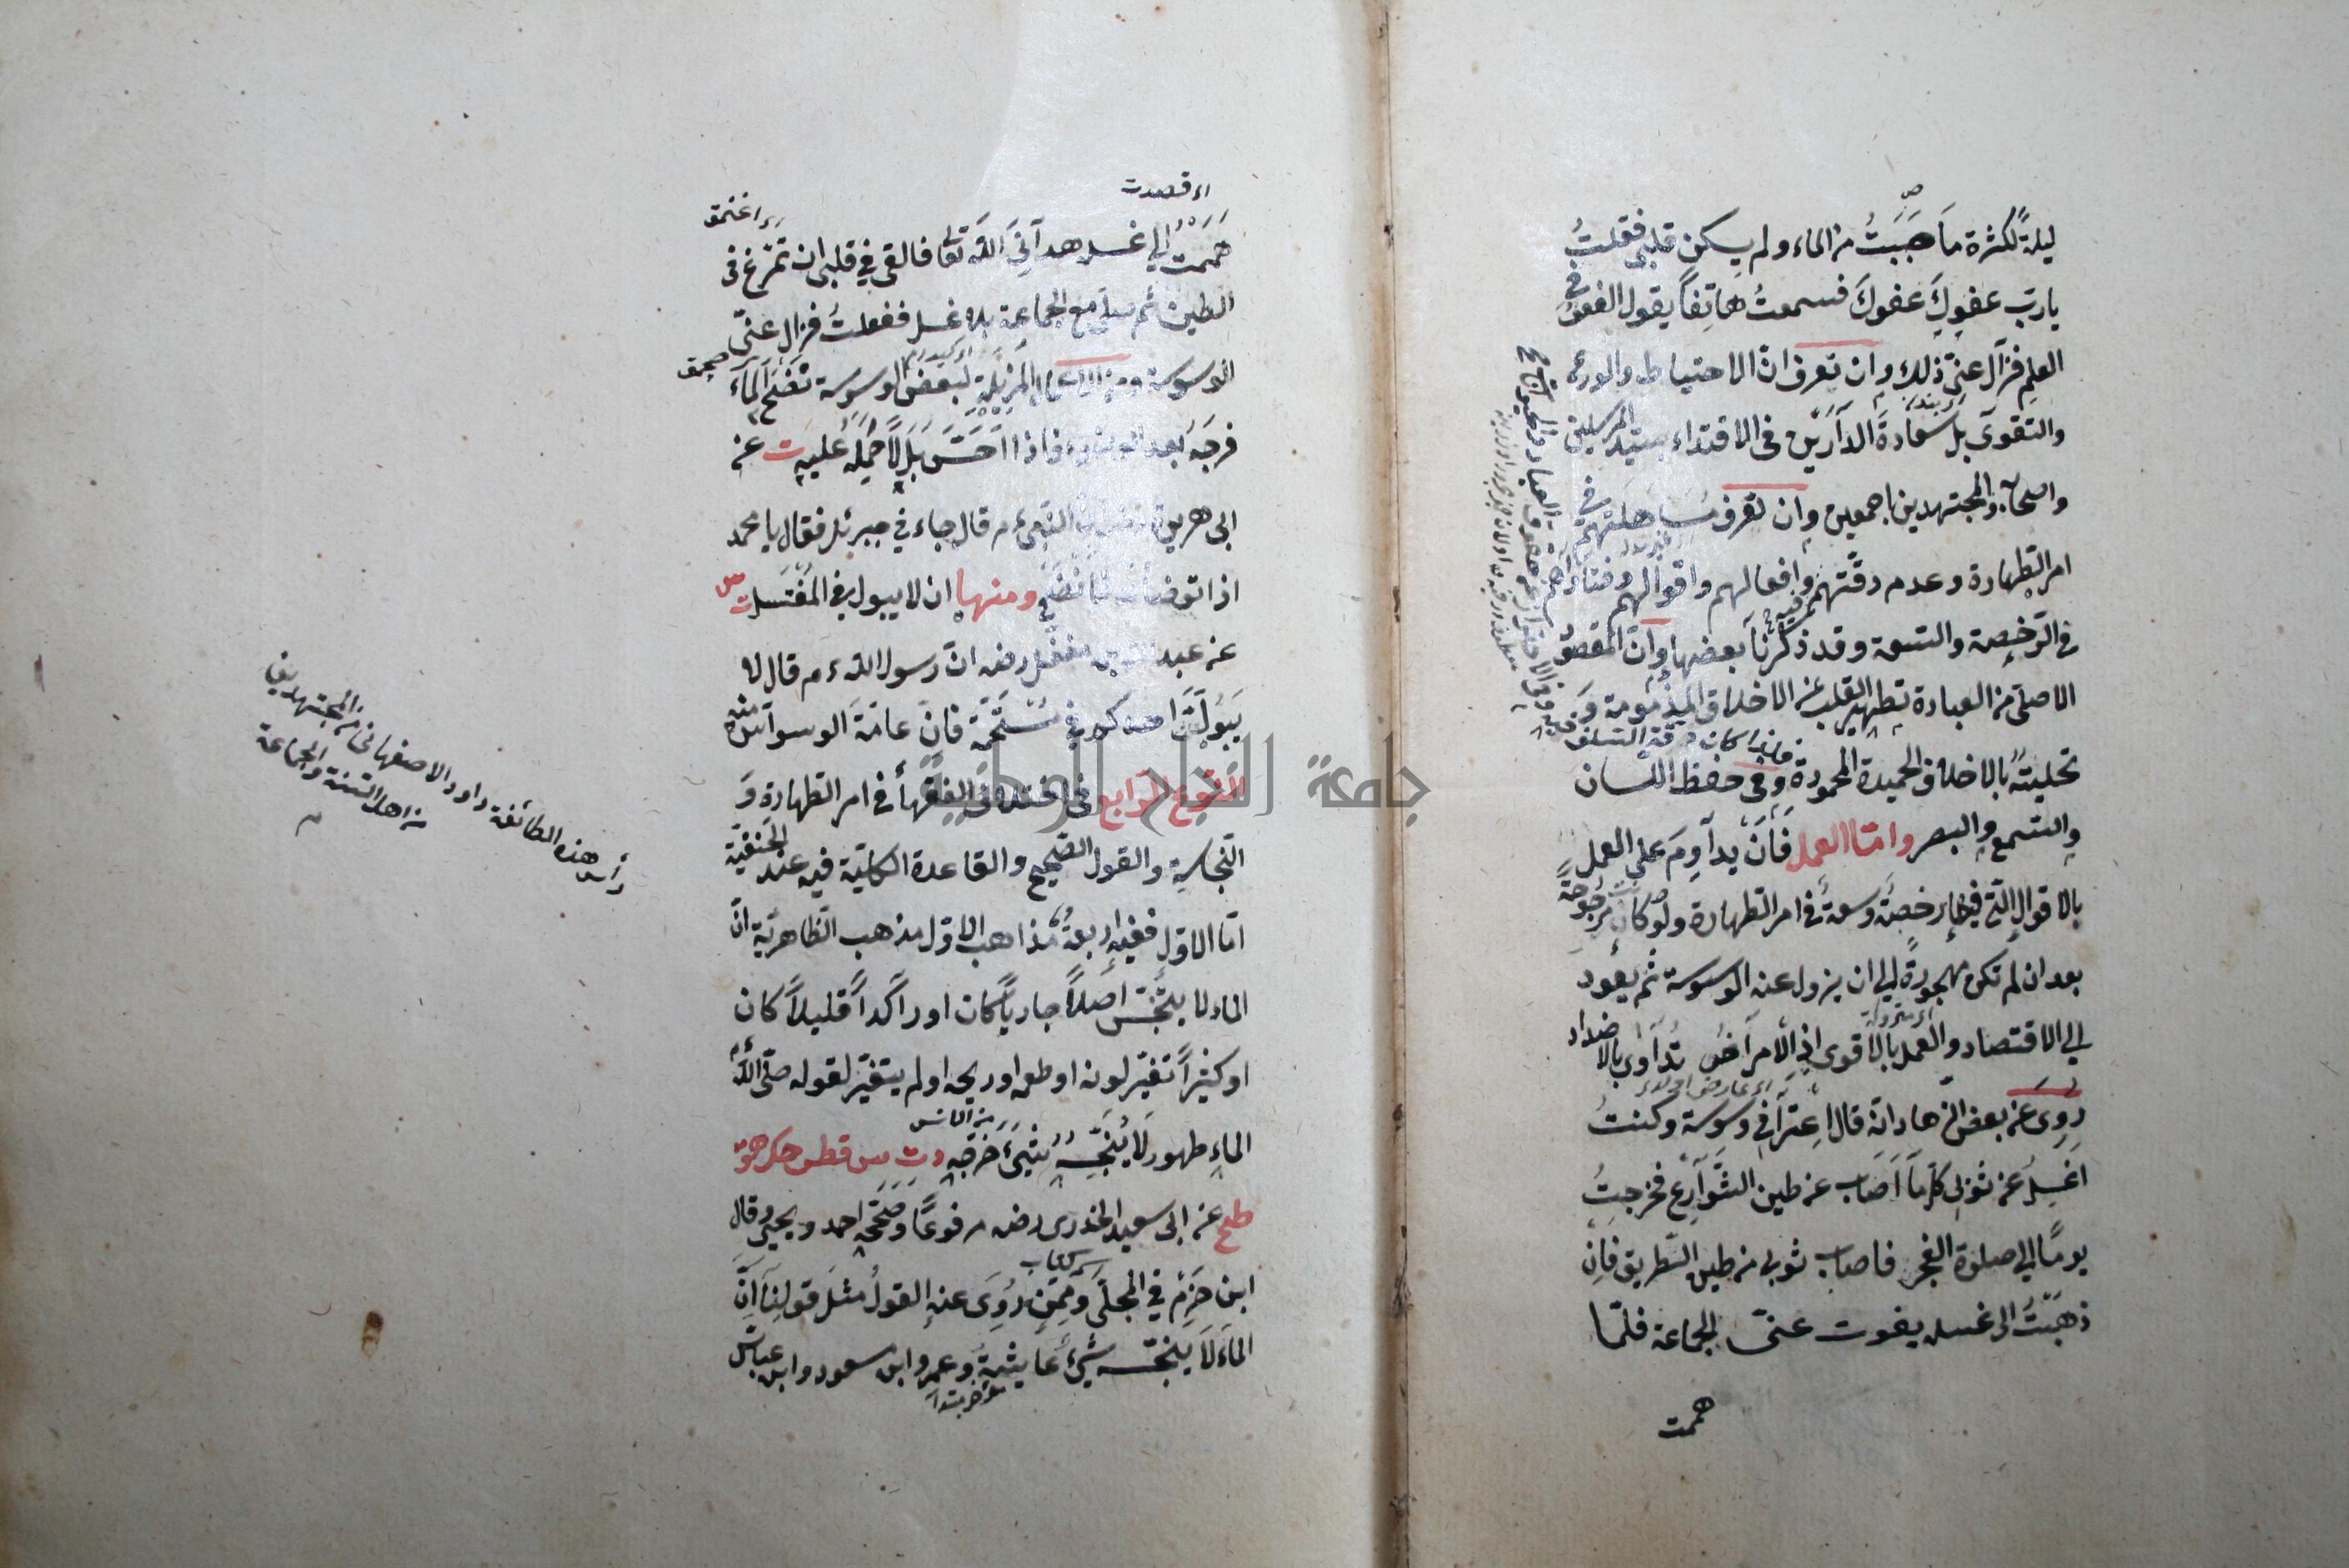 ليلة لكثرة ما صببت من الماء ولم يسكن قلبي فقلت
يا رب عفوك عفوك فسمعت هاتفا يقول العفو في
العلم فزال عني ذلك وان تعرف ان الاحتياط والورع
والتقوى بل سعادة الدارين في الاقتداء بسيد المرسلين
واصحابه والمجتهدين اجمعين وان تعرف مساهلتهم في
امر الطهارة وعدم دقتهم فيه وافعالهم واقوالهم وفتاواهم
في الرخصة والسعة وقد ذكرنا بعضها وان المقصود
الاصلي من العبادة تطهير القلب عن الاخلاق المذمومة و
تحليته بالاخلاق الحميدة المحمودة وفي حفظ اللسان
فلذا كان دقة السلف فيه وفي الاحتراز عن حقوق العباد والحيوانات
والسمع والبصر واما العمل فان يداوم على العمل
بالاقوال التي فيها رخصة وسعة في امر الطهارة ولو كانت مرجوحة
بعد ان لم تكن مهجورة الى ان يزول عنه الوسوسة ثم يعود
الى الاقتصاد والعمل بالاقوى اذ الامراض تداوى بالاضداد
روى عن بعض الزهاد انه قال اعتراني وسوسة وكنت
اغسل عن ثوبي كلما اصاب عن طين الشوارع فخرجت
يوما الى صلوة الفجر فاصاب ثوبي من طين الطريق فان
ذهبت الى غسله يفوت عني الجماعة فلما
هممت
اى قصدت
هممت الى غسله هداني الله تعالى فالقى في قلبي ان تمرغ في
الطين ثم صل مع الجماعة بلا غسل ففعلت فزال عني
الوسوسة ومن الاعمال المزيلة لبعض الوسوسة نضح الماء
فرجه بعد الوضوء فاذا احس بللا حمله عليه ت عن
ابي هريرة رضه ان النبي ءم قال جاءني جبرئل فقال يا محمد
اذا توضأت فانضح ومنها ان لا يبول في المغتسل ت س
عن عبد الله بن مغفل رضه ان رسول الله ءم قال لا
يبولن احدكم في مستحمه فان عامة الوسواس منه
النوع الرابع في اختلاف الفقهاء في امر الطهارة و
النجاسة والقول الصحيح والقاعدة الكلية فيه عند الحنفية
اما الاول ففيه اربعة مذاهب الاول مذهب الظاهرية ان
الماء لا يتنجس اصلا جاريا كان او راكدا قليلا كان
او كثيرا تغير لونه او طعمه او ريحه او لم يتغير لقوله صلى الله
الماء طهور لا ينجسه شيء خرجه د ت س قطن حك هق
طح عن ابي سعيد الخدري رضه مرفوعا وصححه احمد ويحيى وقال
اسم كتاب
ابن حزم في المحلى وممن روى عنه القول مثل قولنا ان
الماء لا ينجسه شيء عايشة وعمر وابن مسعود وابن عباس
رأس هذه الطائفة داود الاصفهاني من المجتهدين
من اهل السنة والجماعة
جامعة النجاح الوطنية